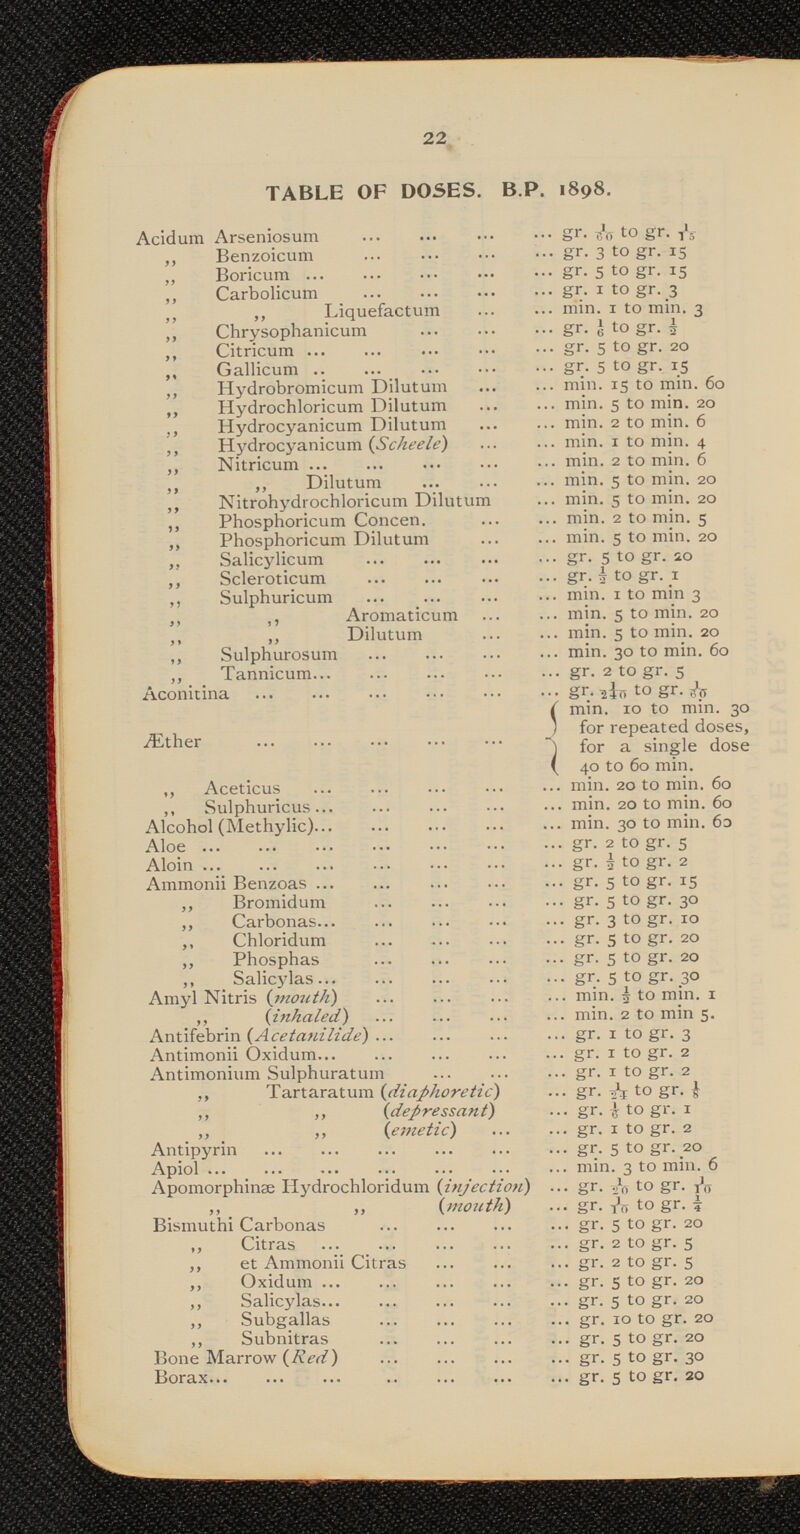 22
TABLE OF DOSES. B.P. 1898.
Acidum Arseniosum ... ... ... ... gr. 1/60 to gr. 1/15
,, Benzoicum ... ... ... ... gr. 3 to gr. 15
,, Boricum ... ... ... ... ... gr. 5 to gr. 15
,, Carbolicum ... ... ... ... gr. 1 to gr. 3
,, ,, Liquefactum ... ... min. 1 to min. 3
,, Chrysophanicum ... ... ... gr. 1/6 to gr. 1/2
,, Citricum ... ... ... ... ... gr. 5 to gr. 20
,, Gallicum .. ... ... ... ... gr. 5 to gr. 15
,, Hydrobromicum Dilutum ... ... min. 15 to min. 60
,, Hydrochloricum Dilutum ... ... min. 5 to min. 20
,, Hydrocyanicum Dilutum ... ... min. 2 to min. 6
,, Hydrocyanicum (Scheele) ... ... min. 1 to min. 4
,, Nitricum ... ... ... ... ... min. 2 to min. 6
,, ,, Dilutum ... ... ... min. 5 to min. 20
,, Nitrohydrochloricum Dilutum ... min. 5 to min. 20
,, Phosphoricum Concen. ... ... min. 2 to min. 5
,, Phosphoricum Dilutum ... ... min. 5 to min. 20
,, Salicylicum ... ... ... ... gr. 5 to gr. 20
,, Scleroticum ... ... ... ... gr. 1/2 to gr. 1
,, Sulphuricum ... ... ... ... min. 1 to min 3
,, ,, Aromaticum ... ... min. 5 to min. 20
,, ,, Dilutum ... ... min. 5 to min. 20
,, Sulphurosum ... ... ... ... min. 30 to min. 60
,, Tannicum... ... ... ... ... gr. 2 to gr. 5
Aconitina ... ... ... ... ... ... gr. 1/240 to gr. 1/60
Æther ... ... ... ... ... { min. 10 to min. 30
for repeated doses,
for a single dose
40 to 60 min.
,, Aceticus ... ... ... ... ... min. 20 to min. 60
,, Sulphuricus ... ... ... ... ... min. 20 to min. 60
Alcohol (Methylic)... ... ... ... ... min. 30 to min. 60
Aloe ... ... ... ... ... ... ... gr. 2 to gr. 5
Aloin ... ... ... ... ... ... ... gr. 1/2 to gr. 2
Ammonii Benzoas ... ... ... ... ... gr. 5 to gr. 15
,, Bromidum ... ... ... ... gr. 5 to gr. 30
,, Carbonas... ... ... ... ... gr. 3 to gr. 10
,, Chloridum ... ... ... ... gr. 5 to gr. 20
,, Phosphas ... ... ... ... gr. 5 to gr. 20
,, Salicylas ... ... ... ... ... gr. 5 to gr. 30
Amyl Nitris (mouth) ... ... ... ... min. 1/2 to min. 1
,, (inhaled) ... ... ... ... min. 2 to min 5.
Antifebrin (Acetanilide) ... ... ... ... gr. 1 to gr. 3
Antimonii Oxidum... ... ... ... ... gr. 1 to gr. 2
Antimonium Sulphuratum ... ... ... gr. 1 to gr. 2
,, Tartaratum (diaphoretic) ... gr. 1/24 to gr. 1/8
,, ,, (depressant) ... gr. 1/6 to gr. 1
,, ,, (emetic) ... ... gr. 1 to gr. 2
Antipyrin ... ... ... ... ... ... gr. 5 to gr. 20
Apiol ... ... ... ... ... ... ... min. 3 to min. 6
Apomorphinæ Hydrochloridum (injection) ... gr. 1/20 to gr. 1/10
,, ,, (mouth) ... gr. 1/10 to gr. 1/4
Bismuthi Carbonas ... ... ... ... gr. 5 to gr. 20
,, Citras ... ... ... ... ... gr. 2 to gr. 5
,, et Ammonii Citras ... ... ... gr. 2 to gr. 5
,, Oxidum ... ... ... ... ... gr. 5 to gr. 20
,, Salicylas... ... ... ... ... gr. 5 to gr. 20
,, Subgallas ... ... ... ... gr. 10 to gr. 20
,, Subnitras ... ... ... ... gr. 5 to gr. 20
Bone Marrow (Red) ... ... ... ... gr. 5 to gr. 30
Borax... ... ... .. ... ... ... gr. 5 to gr. 20